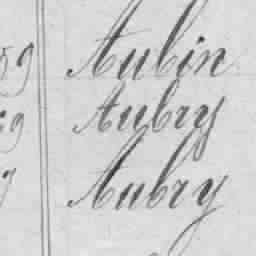 59 Aubin
59 Aubry
9 Aubry